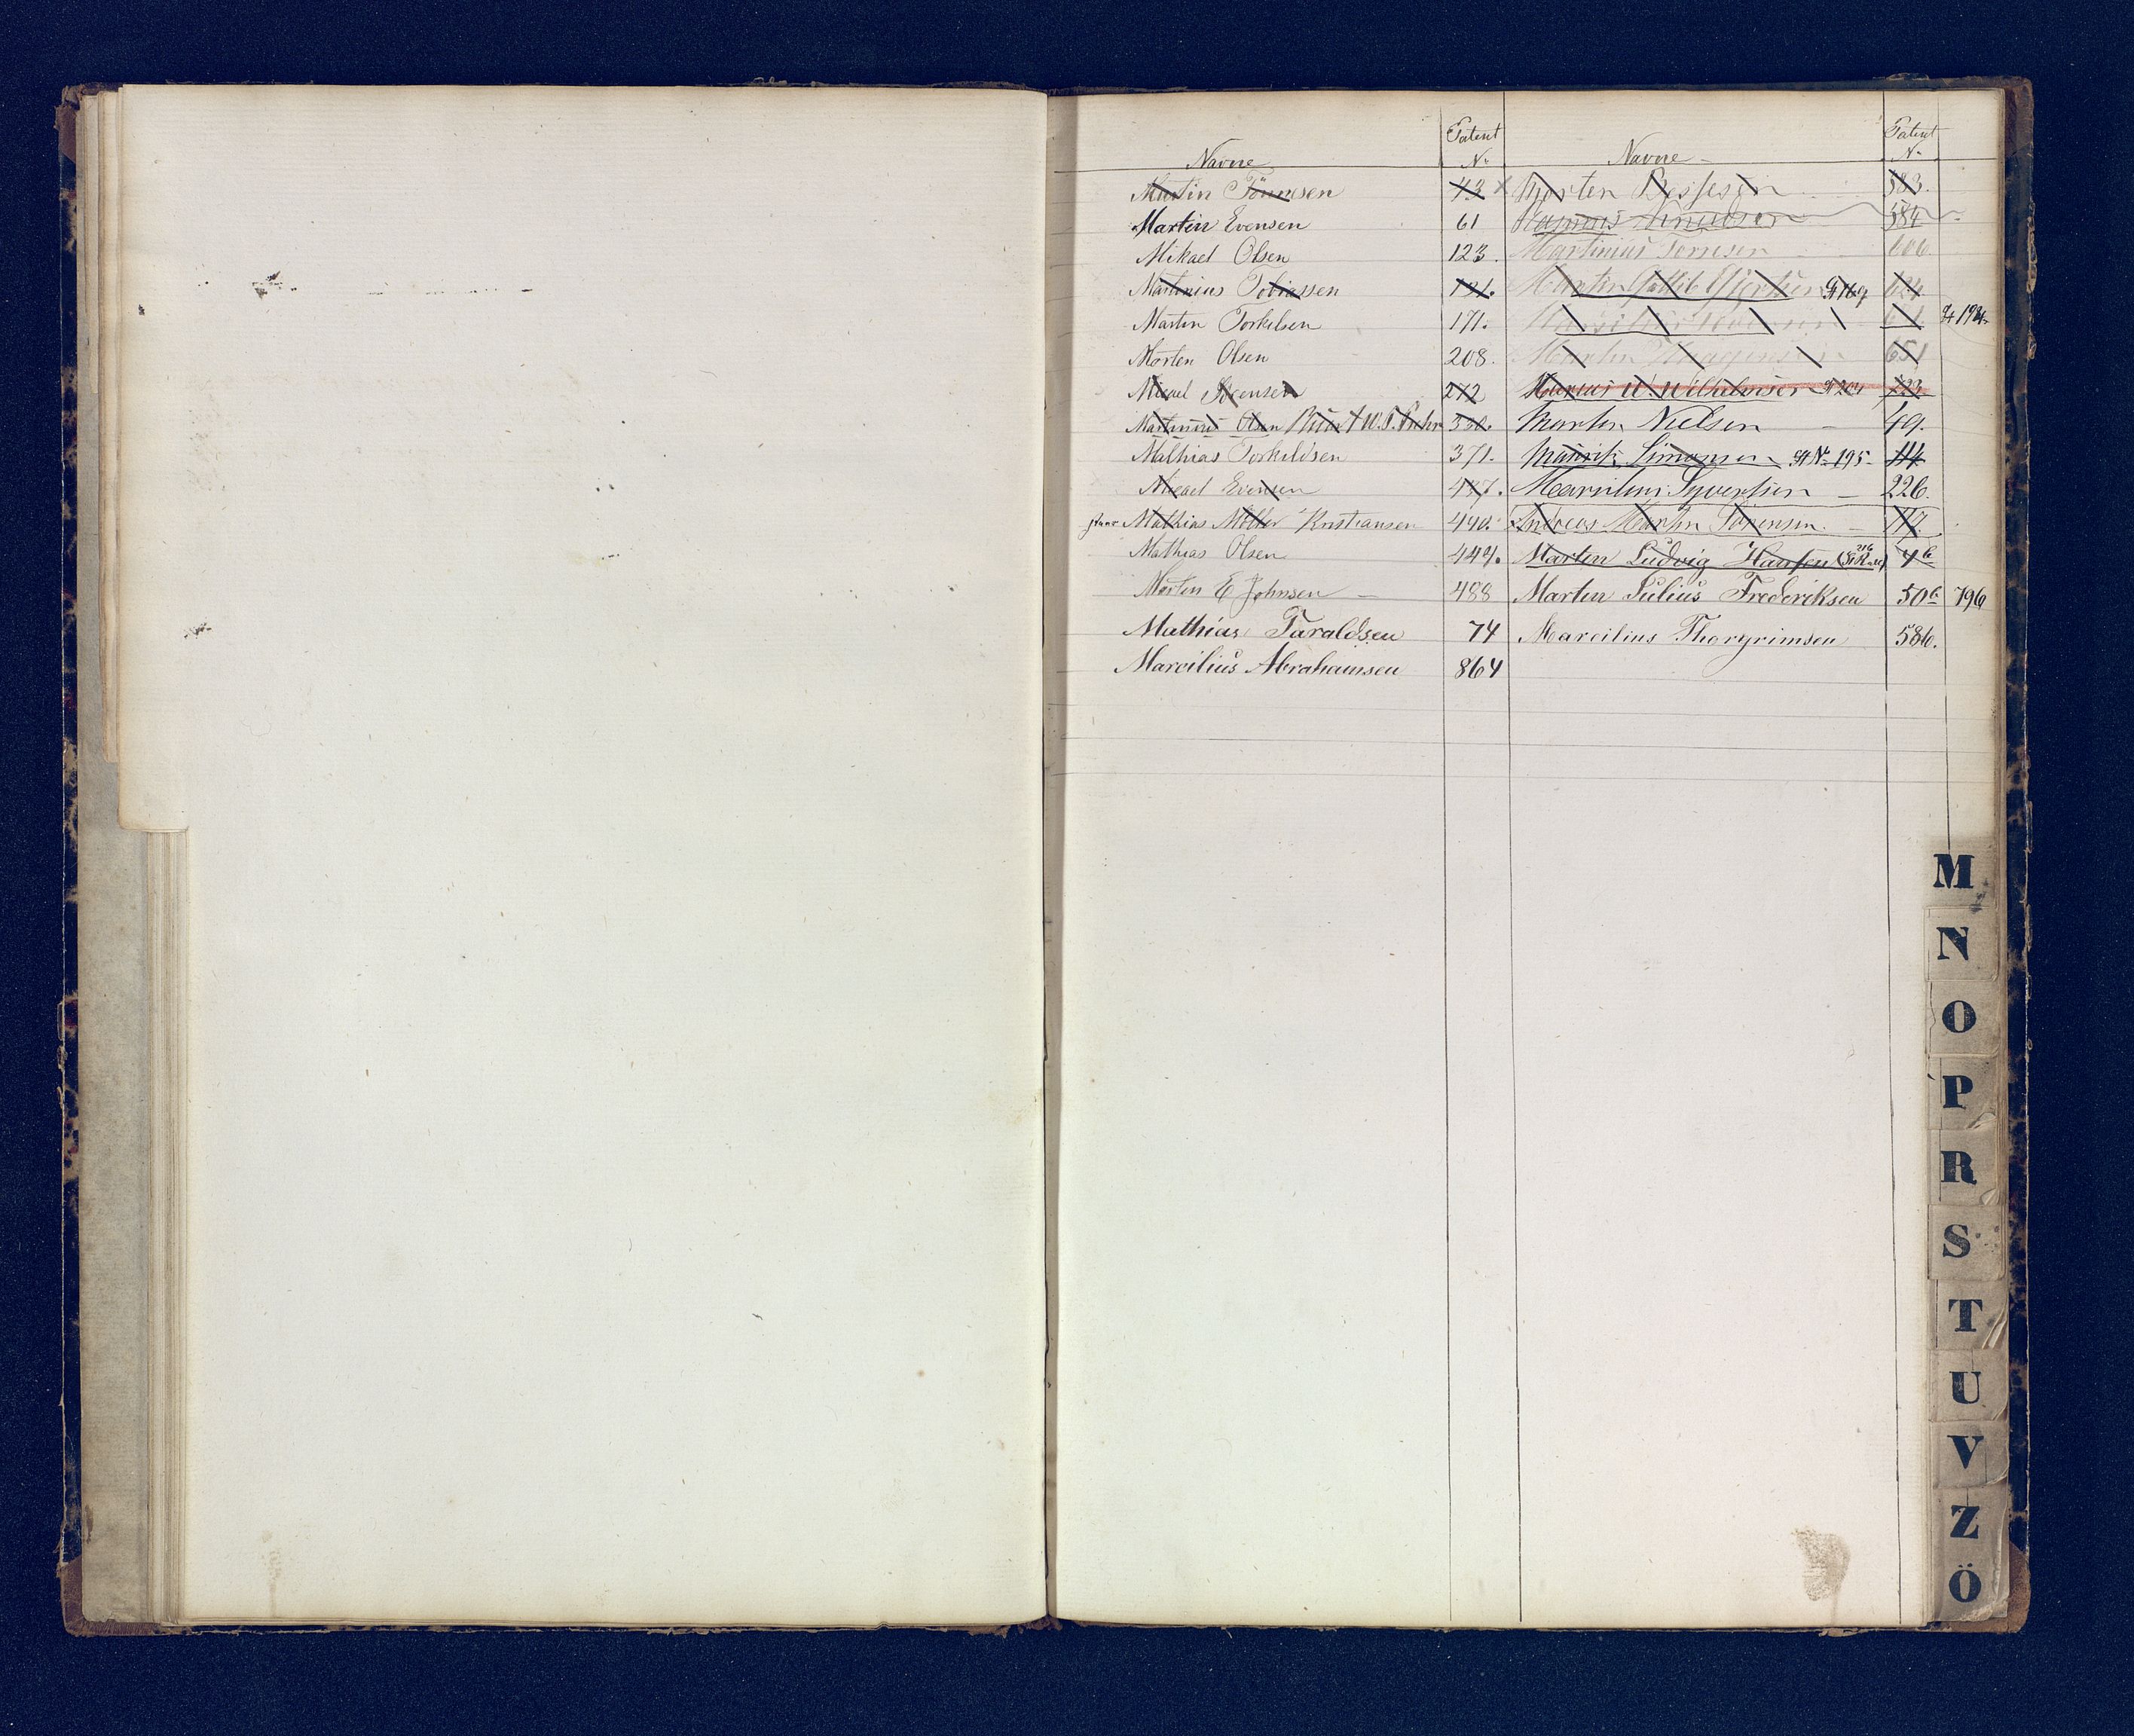 Navne Patent Nr. Navne Patent Nr.
Martin Tönnesen 43 Morten Bessesen 583.
Martin Evensen 61 Knudsen 584
Mikael Olsen 123. Martinius Torresen 606.
Martinius Tobiassen 131. Martin Gottlib 634
Martin Torkelsen 171.
Morten Olsen 208. Martin Haagensen 651
Mikael Sörensen 272 Marius W. Wilhelmsen 723
Martinius Olsen 330. Martin Nielsen 49.
Mathias Torkildsen 371. Mauritz Simonsen Nr. 195 114
Mikael Evensen 437. Marsilius Syvertsen 226.
Mathias Möller Kristiansen 440. Andreas Martin Sörensen 117.
Mathias Olsen 449. Martin Ludvig Hansen 216 4 b
Morten E Johnsen 488 Martin Julius Frederiksen 50 b 796
Mathias Taraldsen 74 Marcilius Thorgrimsen 586.
Marcilius Abrahamsen 864
M
N
O
P
R
S
T
U
V
Z
Ö